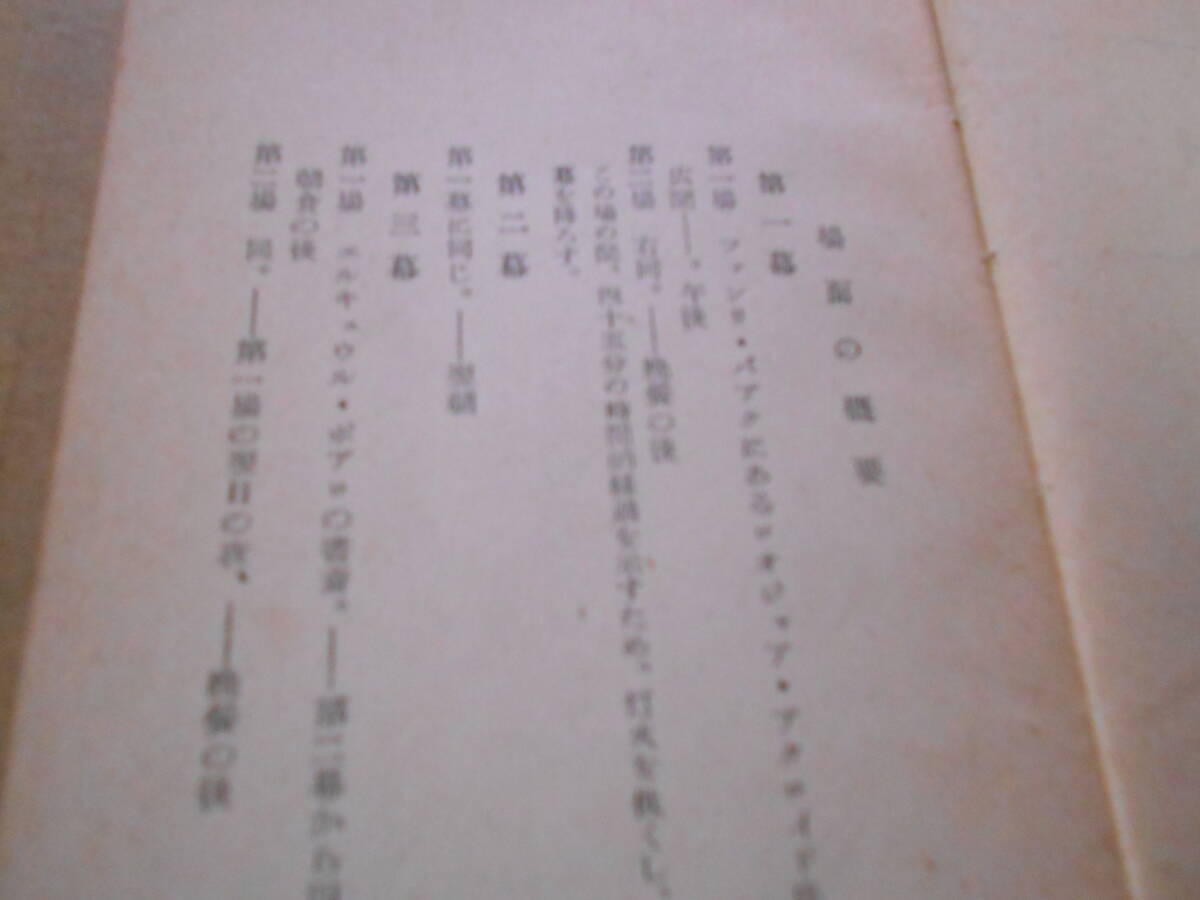 場面の概要
第一幕
第一場　ファンリ・パアクにあるロオジャア・アクロイド
広間――。午後
第二場　右同。――晩餐の後
この場の間、四十五分の時間的経過を示すため、灯火を暗くし、
幕を降ろす。
第二幕
第一幕に同じ。――翌朝
第三幕
第一場　エルキュウル・ポアロの書斎。――第二幕から
朝食の後
第二場　同。――第一場の翌日の夜。――晩餐の後